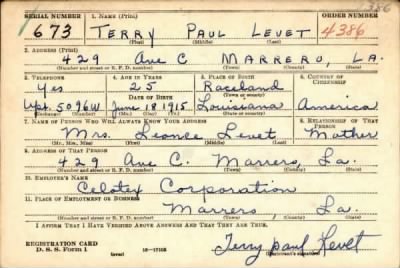 1386
SERIAL NUMBER 1. NAME (Print) ORDER NUMBER
673 TERRY PAUL LEVET 4386
(First) (Middle) (Last)
2. ADDRESS (Print)
429 Ave C MARRERO, LA.
(Number and street or R. F. D. number) (Town) (County) (State)
3. TELEPHONE 4. AGE IN YEARS 5. PLACE OF BIRTH 6. COUNTRY OF CITIZENSHIP
Yes 25 Raceland
DATE OF BIRTH (Town or county)
Upt. 5096W June 18 1915 Louisiana America
(Exchange) (Number) (Mo.) (Day) (Yr.) (State or country)
7. NAME OF PERSON WHO WILL ALWAYS KNOW YOUR ADDRESS 8. RELATIONSHIP OF THAT PERSON
Mrs. Leonce Levet Mother
(Mr., Mrs., Miss) (First) (Middle) (Last)
9. ADDRESS OF THAT PERSON
429 Ave C. Marrero, La.
(Number and street or R. F. D. number) (Town) (County) (State)
10. EMPLOYER'S NAME
Celotex Corporation
11. PLACE OF EMPLOYMENT OR BUSINESS
Marrero, La.
(Number and street or R. F. D. number) (Town) (County) (State)
I AFFIRM THAT I HAVE VERIFIED ABOVE ANSWERS AND THAT THEY ARE TRUE.
Terry paul Levet
REGISTRATION CARD
D. S. S. Form 1 (over) 16-17105 (Registrant's signature)